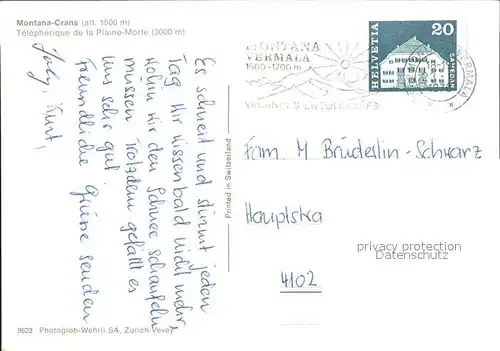 Montana-Crans (alt. 1500 m)
Téléphérique de la Plaine-Morte (3000 m)
Es schneit und stürmt jeden
Tag. Wir wissen bald nicht mehr,
wohin wir den Schnee schaufeln
müssen. Trotzdem gefällt es
uns sehr gut.
Freundliche Grüsse senden
Kurt,
Printed in Switzerland
9623 Photoglob-Wehrli SA, Zürich Vevey
MONTANA
VERMALA
1500-1700 m
VACANCES ENSOLEILLÉES
HELVETIA
20
SAMEDAN
Fam. M Brüderlin-Schwarz
Hauptstra
4102
privacy protection
Datenschutz